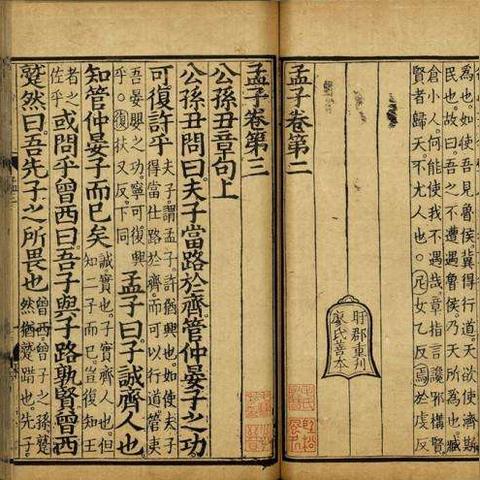 為也。如使吾見魯侯。冀得行道。天欲使濟斯
民也。故曰。吾之不遭遇魯侯。乃天所為也。臧
倉小人。何能使我不遇哉。章指言讒邪構賢
賢者歸天。不尤人也。尼女乙反。焉於虔反
盱郡重刊
廖氏善本
孟子卷第二
孟子卷第三
公孫丑章句上
公孫丑問曰。夫子當路於齊。管仲晏子之功
可復許乎
夫子。謂孟子。許猶興也。如使夫子
得當仕路於齊。而可以行道。管夷
吾晏嬰之功。寧可復興
乎。復扶又反。下同
孟子曰。子誠齊人也
知管仲晏子而已矣
誠實也。子實齊人也。但
知二子而已。豈復知王
者之
佐乎
或問乎曾西曰。吾子與子路孰賢。曾西
蹵然曰。吾先子之所畏也
曾西。曾子之孫。蹵
然猶蹵踖也。先子